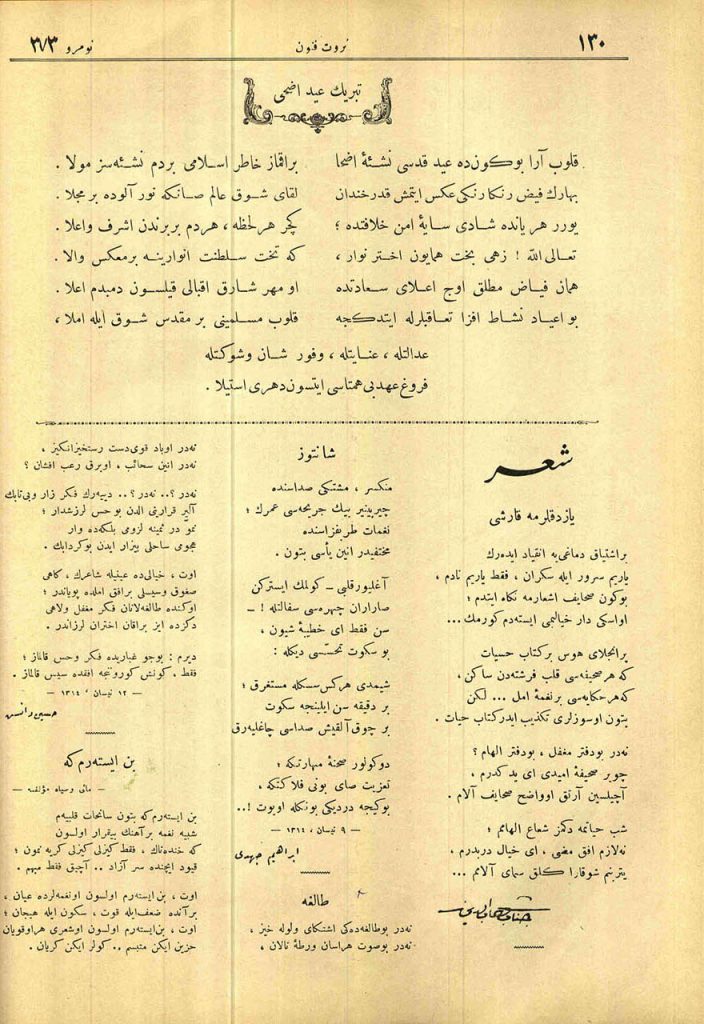 ١٣٠
ثروت فنون
نومرو ٣٧٣
تبريك عيد اضحى
قلوب آرا بوكون‌ده عيد قدسى نشئهٔ اضحا
براقماز خاطر اسلامى بردم نشئه‌سز مولا .
بهارك فيض رنكا رنكى عكس ايتمش قدر خندان
لقاى شوق عالم صانكه نور آلوده بر مجلا .
يورر هر يانده شادى سايهٔ امن خلافتده ؛
كچر هر لحظه ، هردم بربرندن اشرف واعلا .
تعالى الله ! زهى بخت همايون اختر نوار ،
كه تخت سلطنت انوارينه بر معكس والا .
همان فياض مطلق اوج اعلاى سعادتده
او مهر شارق اقبالى قيلسون دمبدم اعلا .
بو اعياد نشاط افزا تعاقبلرله ايتدكجه
قلوب مسلمينى بر مقدس شوق ايله املا ،
عدالتله ، عنايتله ، وفور شان وشوكتله
فروغ عهد بى همتاسى ايتسون دهرى استيلا .
شعر
يازدقلرمه قارشى
بر اشتياق دماغى‌يه انقياد ايده‌رك
ياريم سرور ايله سكران ، فقط ياريم نادم ،
بوكون صحايف اشعارمه نكاه ايتدم ؛
اواسكى دار خيالمى ايسته‌دم كورمك ...
پرانجلاى هوس بركتاب حسيات
كه هر صحيفه‌سى قلب فرشته‌دن ساكن ،
كه هر حكايه‌سى برنغمهٔ امل ... لكن
بتون اوسوزلرى تكذيب ايدر كتاب حيات .
نه‌در بودفتر مغفل ، بودفتر الهام ؟
چوبر صحيفهٔ اميدى اى يد كدرم ،
آچيلسين آرتق اوواضح صحايف آلام .
شب حياتمه دكمز شعاع الهامم ؛
نه‌لازم افق مضى ، اى خيال دربدرم ،
يترنم شوقارا كلق سماى آلامم ...
جناب شهاب الدين
شانتوز
منكسر ، مشتكى صداسنده
چيرپينير بيك جريحه‌سى عمرك ؛
نغمات طربفزاسنده
مختفيدر انين يأسى بتون .
آغليور قلبى ــ كولمك ايستركن
صاراران چهره‌سى سفالتله ! ــ
سن فقط اى خطيبهٔ شيون ،
بو سكوت تحسسى ديكله :
شيمدى هركس سسكله مستغرق ؛
بر دقيقه سن ايلينجه سكوت
بر چوق آلقيش صداسى چاغليه‌رق
دوكولور صحنهٔ مبهارتكه ؛
تعزيت صاى بونى فلاكتكه ،
بوكيجه درديكى بونكله اويوت !..
— ٩ نيسان ، ١٣١٤ —
ابراهيم جهدى
طالغه
نه‌در بوطالغه‌ده‌كى اشتكاى ولوله خيز ،
نه‌در بوصوت هراسان ورطهٔ نالان ،
نه‌در اوياد قوى‌دست رستخيز انكيز ،
نه‌در انين سحائب ، اوبرق رعب افشان ؟
نه‌در ؟.. نه‌در ؟.. دييه‌رك فكر زار وبى‌تابك
آلير قرارينى الدن بو حس لرزشدار ؛
نمو در ثمينه لزومى بلكه‌ده وار
هجومى ساحلى بيزار ايدن بوكردابك .
اوت ، خيالى‌ده عينيله شاعرك ، كاهى
صفوق وسيسلى برافق املده پوياندر ؛
اوكنده طالغه‌لانان فكر مغفل ولاهى
دكزده ايز براقان اختران لرزاندر .
ديرم : بوجو غباريده فكر وحس قالماز ؛
فقط . كونش كورونجه افقده سيس قالماز .
— ١٢ نيسان ، ١٣١٤ —
حسين دانش
بن ايسته‌رم كه
— مائى وسياه مؤلفنه —
بن ايسته‌رم كه بتون سانحات قلبيه‌م
شبيه نغمه برآهنك بيقرار اولسون
كه خنده‌ناك ، فقط كيزلى كيزلى كريه نمون ؛
قيود ايچنده سر آزاد .. آچيق فقط مبهم .
اوت ، بن‌ايسته‌رم اولسون اونغمه‌لرده عيان ،
برآنده ضعف‌ايله قوت ، سكون ايله هيجان ؛
اوت ، بن‌ايسته‌رم اولسون اوشعرى هراوقويان
حزين ايكن متبسم .. كولر ايكن كريان .